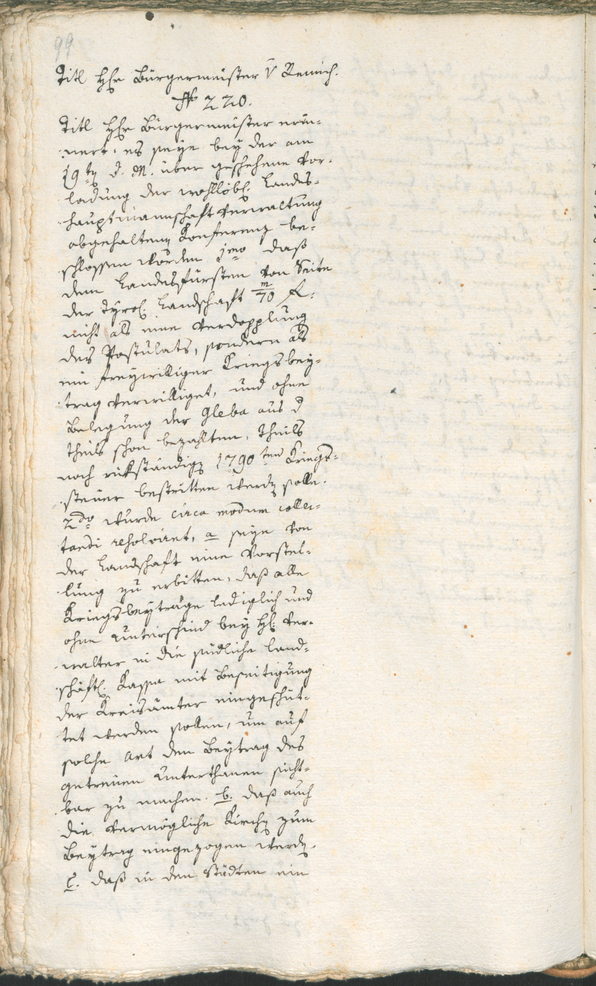 99
Titl Hhr Bürgermeister v Remich.
№ 220.
Titl Hhr Bürgermeister erin-
nert, es seye bey der am
19ty d. M. über geschehene Vor-
ladung der wohllöbl. Landes-
hauptmannschaft Verwaltung
abgehalteny Konferenz be-
schlossen worden 1mo daß
dem Landesfürsten von Seite
der Tyrol. Landschaft m/70 f.
nicht als eine Verdopplung
des Postulats, sondern als
ein freywilliger Kriegsbey-
trag verwilliget, und ohne
Belegung der Gleba aus d
theils schon bezahlten, theils
noch rükständigy 1790ten Kriegs-
steuer bestritten werdy solle.
2do wurde circa modum collec-
tandi resolviert, a seye von
der Landschaft eine Vorstel-
lung zu erbitten, daß alle
Kriegsbeyträge lediglich und
ohne Unterschied bey H. Ver-
walter in die südliche land-
schäftl. Kassa mit Beseitigung
der Kreisämter eingeschüt-
tet werden sollen, um auf
solche Art den Beytrag des
getreuen Unterthanen sicht-
bar zu machen. b. daß auch
die vermögliche Kirchy zum
Beytrag eingezogen werdy.
c. daß in den Städten ein